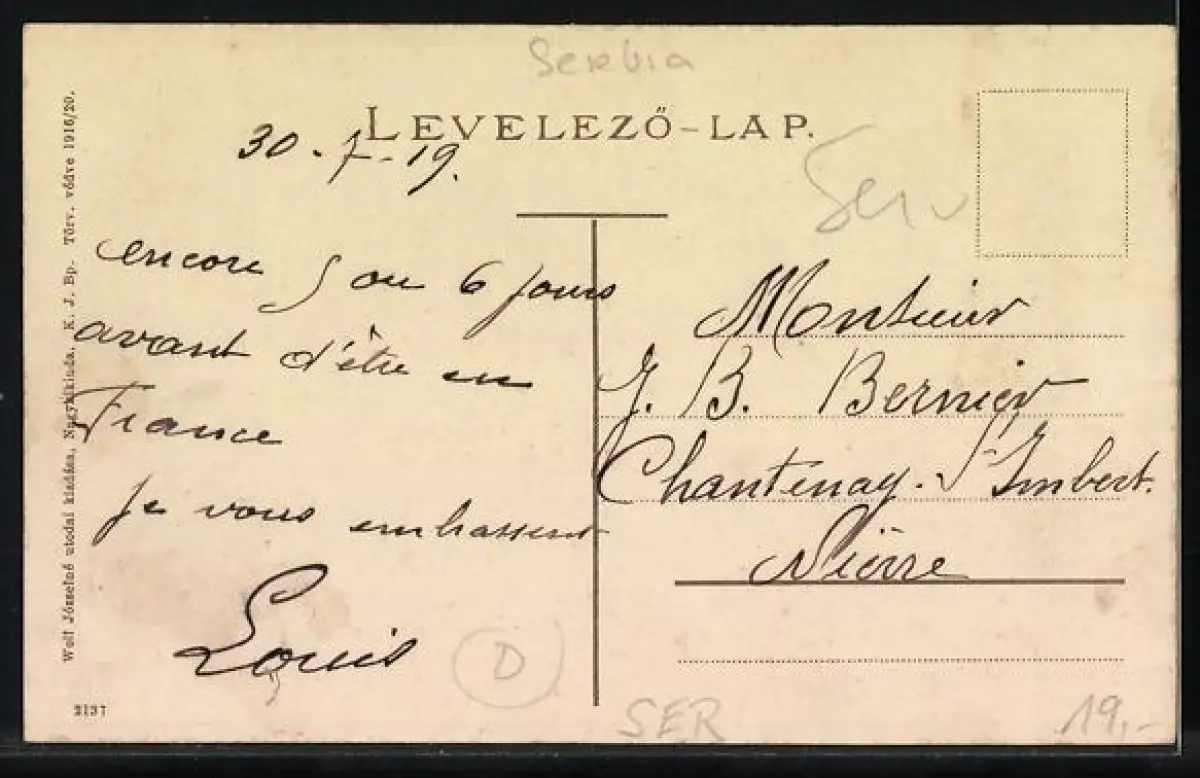 Serbia
LEVELEZŐ-LAP.
30-7-19.
Serv
encore 5 ou 6 jours
avant d'être en
France
je vous embrassent
Louis
Monsieur
J. B. Bernier
Chantenay-St Imbert.
Nièvre
D
SER
19,-
Wolf Józsefné utodai kiadása, Nagykikinda. K. J. Bp. Törv. védve 1916/20.
2197